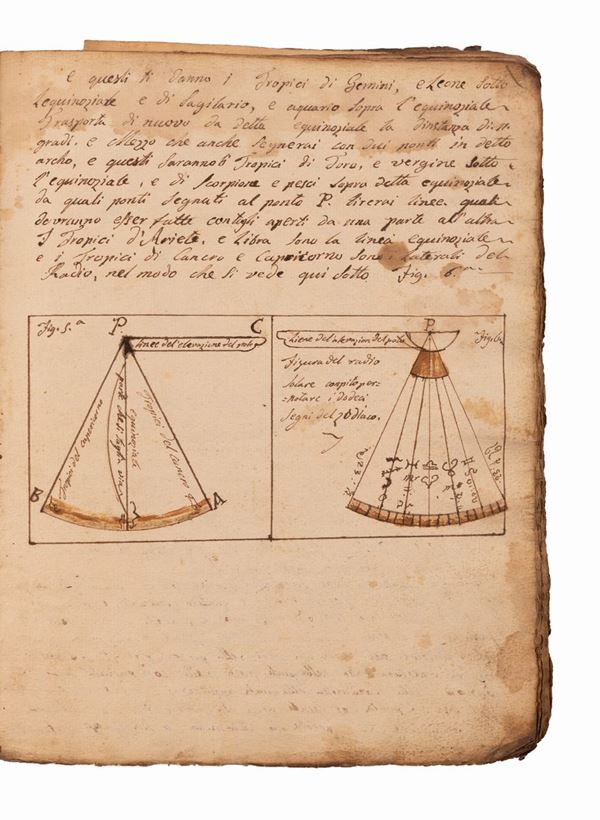 e questi ti danno i Tropici di Gemini, e Leone sotto
Lequinoziale e di Sagitario, e aquario sopra l'equinoziale
Trasporta di nuovo da detta equinoziale la distanza di 11.
gradi, e Mezzo che anche segnerai con dui ponti in detto
archo, e questi saranno li Tropici di Toro, e vergine sotto
l'equinoziale, e di Scorpione e pesci sopra detta equinoziale
da quali ponti segnati al ponto P. tirerai linee quali
devranno esser fatte con tagli aperti da una parte all'altra
I Tropici d'Ariete, e Libra sono la linea equinoziale
e i Tropici di Cancro e Capricorno sono i laterali del
Radio, nel modo che si vede qui sotto Fig. 6.
Fig. 5.a
P.
C
linee del'elevazione del polo
Tropici del capricorno
parte che si taglia via
equinoziale
Tropici del cancro
B
A
Liene del'alevazion del polo
P
Fig. 6.
Figura del radio
Solare compito per
notare i dodeci
Segni del Zodiaco.